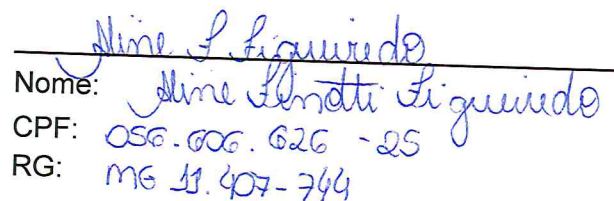 Aline F Figueiredo
Nome: Aline Finotti Figueiredo
CPF: 056.606.626-25
RG: MG 11.407-744